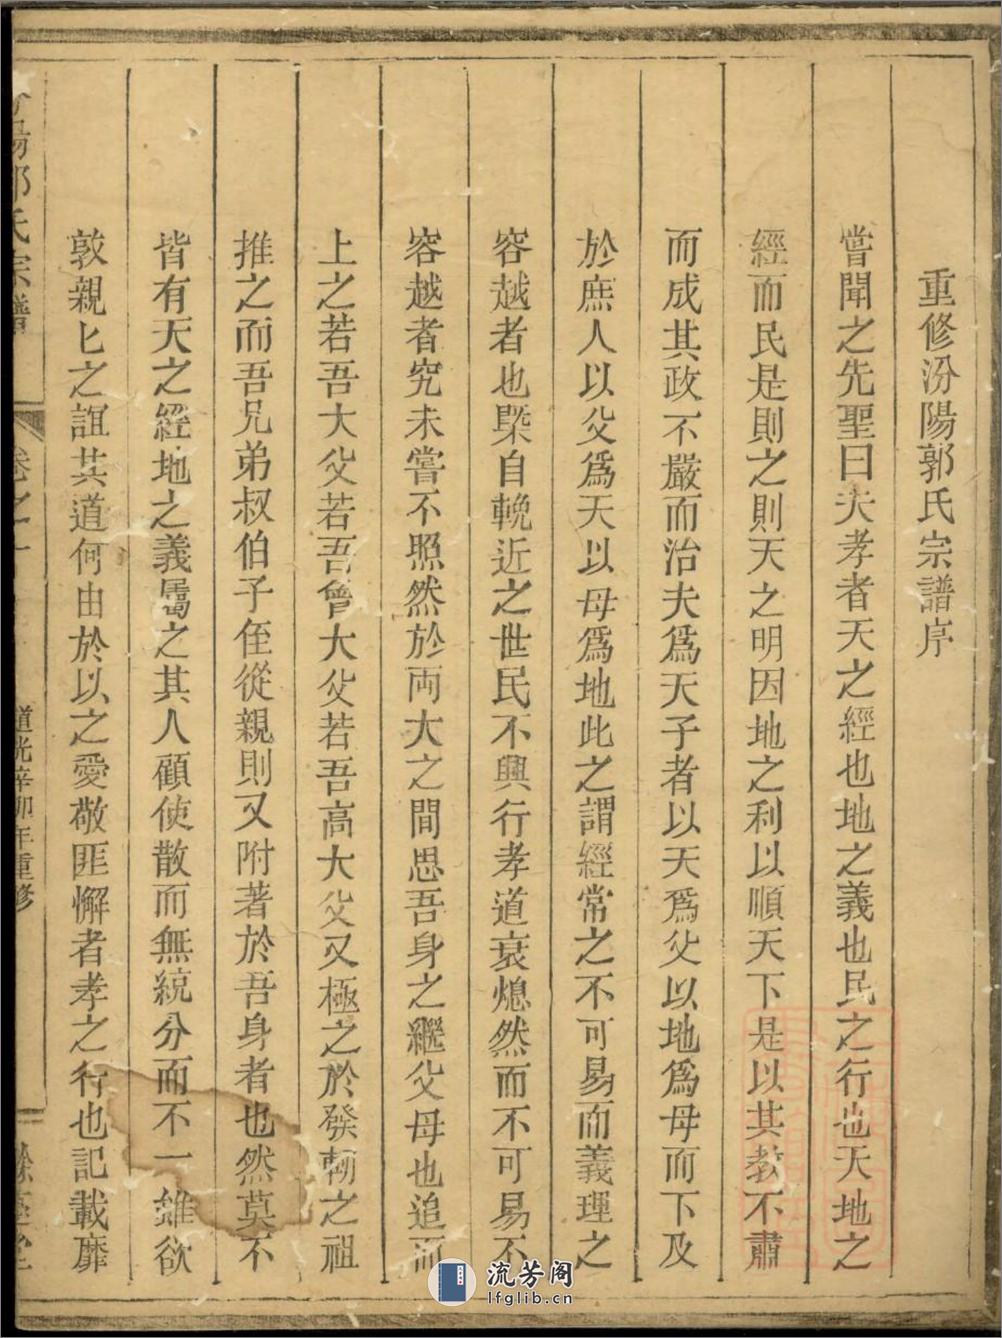 重修汾陽郭氏宗譜序
嘗聞之先聖曰夫孝者天之經也地之義也民之行也天地之
經而民是則之則天之明因地之利以順天下是以其教不肅
而成其政不嚴而治夫爲天子者以天爲父以地爲母而下及
於庶人以父爲天以母爲地此之謂經常之不可易而義理之
容越者也槩自輓近之世民不興行孝道衰熄然而不可易不
容越者究未嘗不照然於両大之間思吾身之繼父母也追而
上之若吾大父若吾曾大父若吾高大父又極之於發軔之祖
推之而吾兄弟叔伯子侄從親則又附著於吾身者也然莫不
皆有天之經地之義屬之其人顧使散而無統分而不一雖欲
敦親匕之誼其道何由於以之愛敬匪懈者孝之行也記載靡
汾陽郭氏宗譜
卷之一
道光辛卯年重修
餘慶堂
流芳阁
lfglib.cn